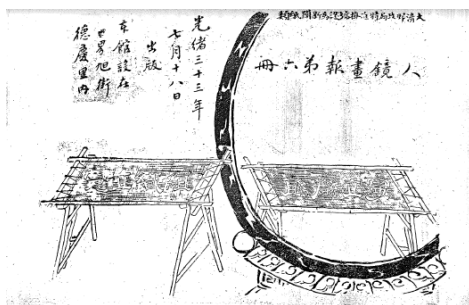 大清郵政局特准掛號認為新聞紙類
人鏡畫報第六冊
光緒三十三年
七月十八日
出版
本館設在
日界旭街
德慶里內